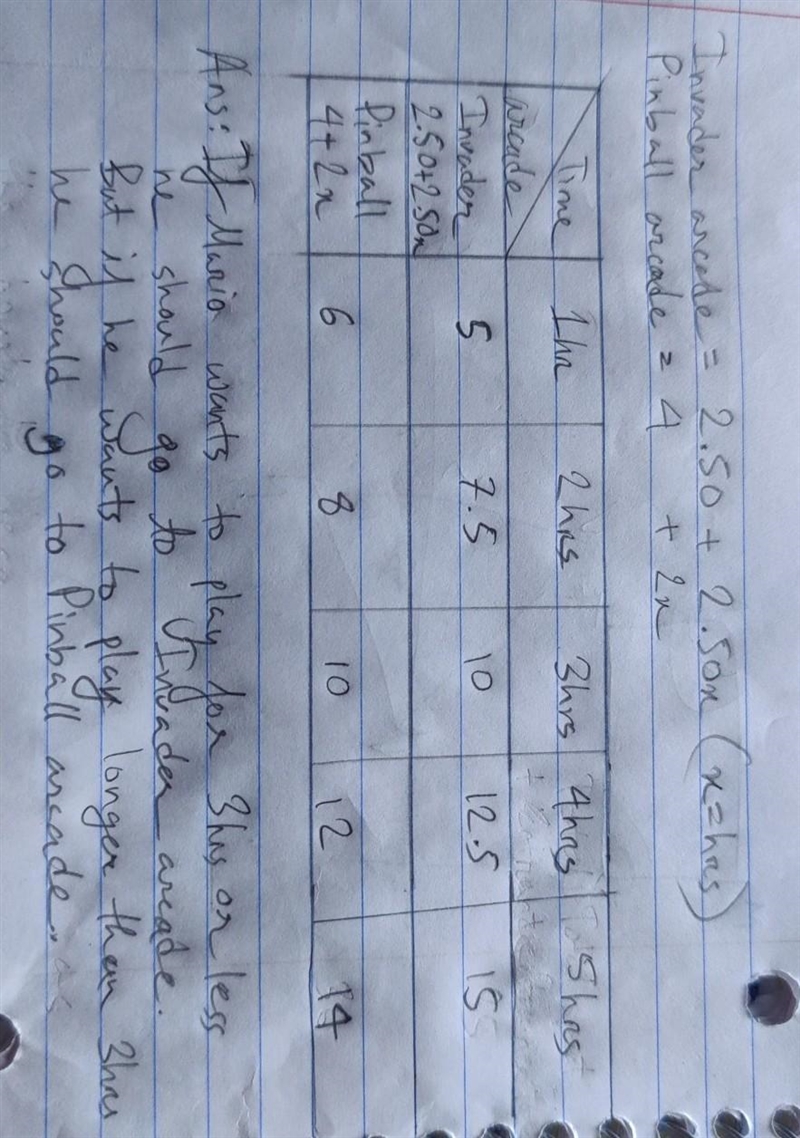 Invader arcade = 2.50 + 2.50x (x=hrs)
Pinball arcade = 4 + 2x
Time 1hr 2hrs 3hrs 4hrs 5hrs
arcade
Invader 5 7.5 10 12.5 15
2.50+2.50x
Pinball 6 8 10 12 14
4+2x
Ans: If Mario wants to play for 3hrs or less
he should go to Invader arcade.
But if he wants to play longer than 3hrs
he should go to Pinball arcade.